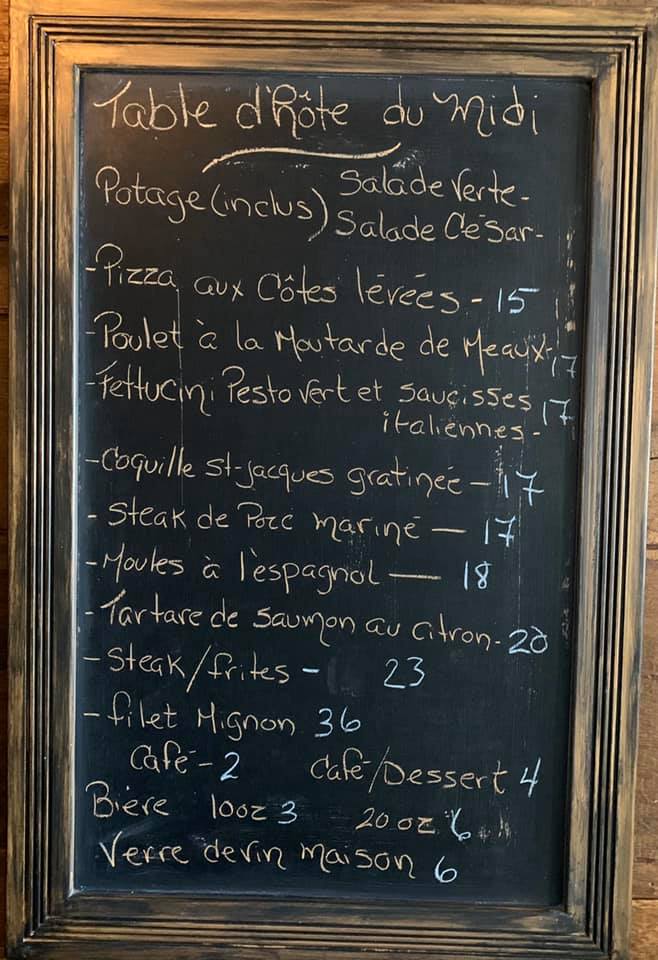 Table d'hôte du Midi
Potage (inclus) Salade Verte -
Salade César -
- Pizza aux Côtes lévées - 15
- Poulet à la Moutarde de Meaux - 17
- Fettucini Pesto vert et saucisses 17
italiennes -
- Coquille St-jacques gratinée - 17
- Steak de Porc mariné - 17
- Moules à l'espagnol - 18
- Tartare de saumon au citron - 20
- Steak/frites - 23
- filet Mignon 36
Café - 2 Café/Dessert 4
Bière 10oz 3 20 oz 6
Verre de vin maison 6